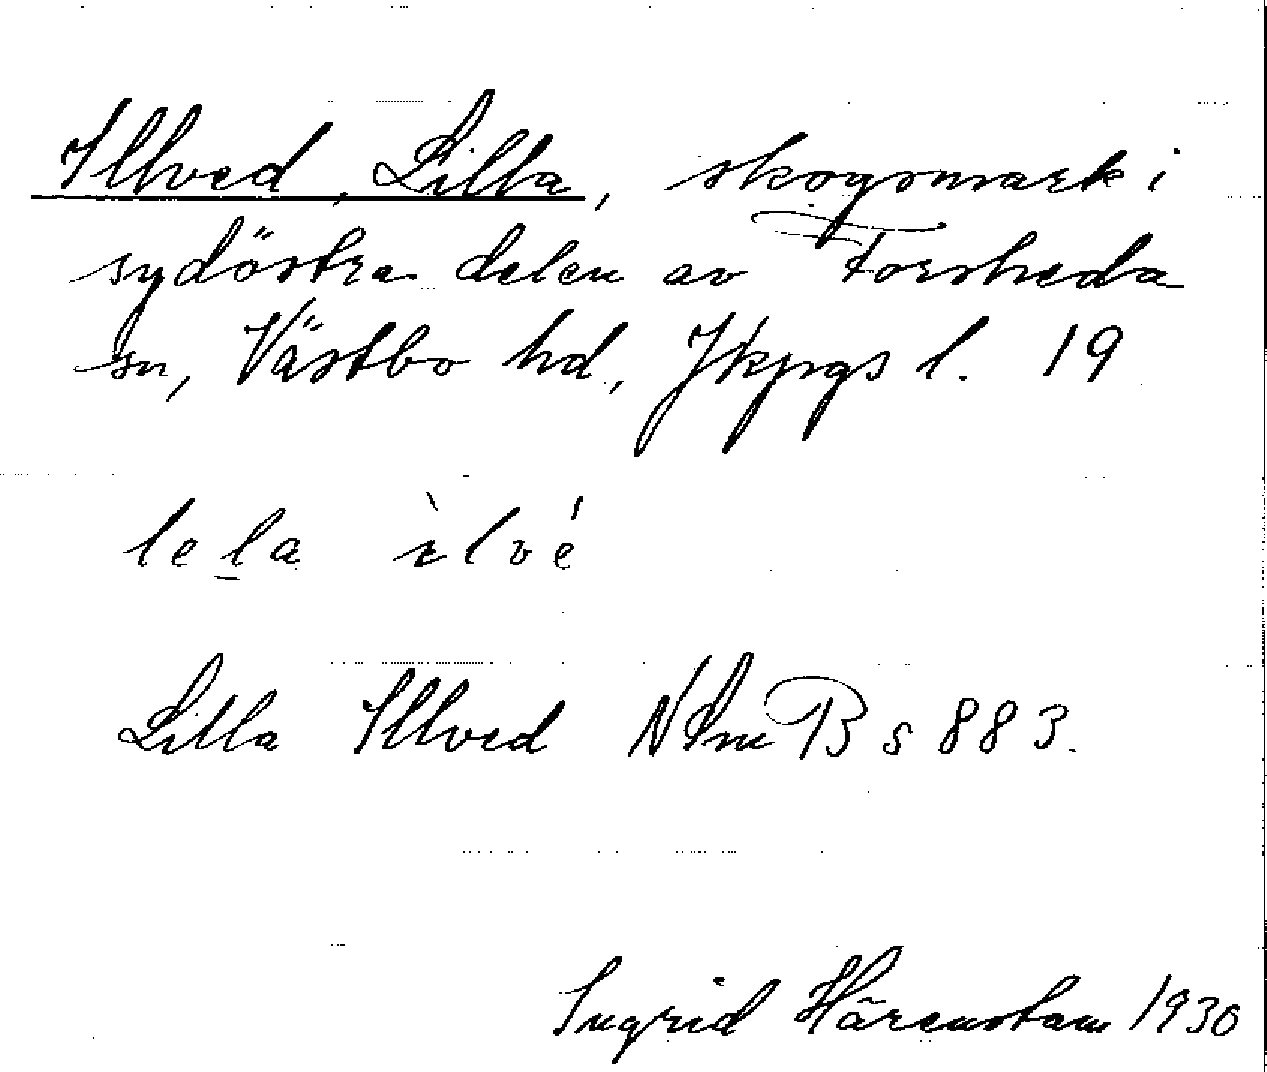 Illved, Lilla, skogsmark i
sydöstra delen av Forsheda
sn, Västbo hd, Jkpgs l. 19
lela ìlvé
Lilla Illved NSmB s 883.
Ingrid Härenstam 1930